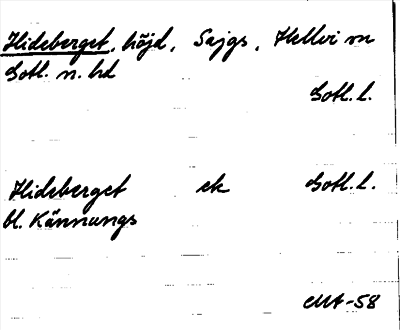 Hideberget, höjd, Sajgs, Hellvi sn
Gotl. n. hd
Gotl. l.
Hideberget ek Gotl. l.
bl. Kännungs
MA-58